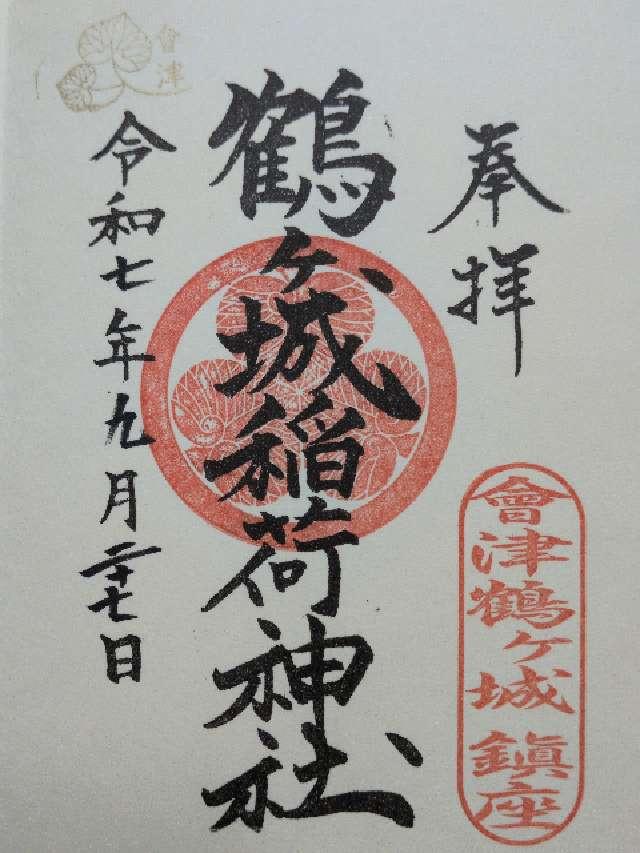 奉拝
會津鶴ヶ城鎮座
鶴ヶ城稲荷神社
令和七年九月二十七日
會津